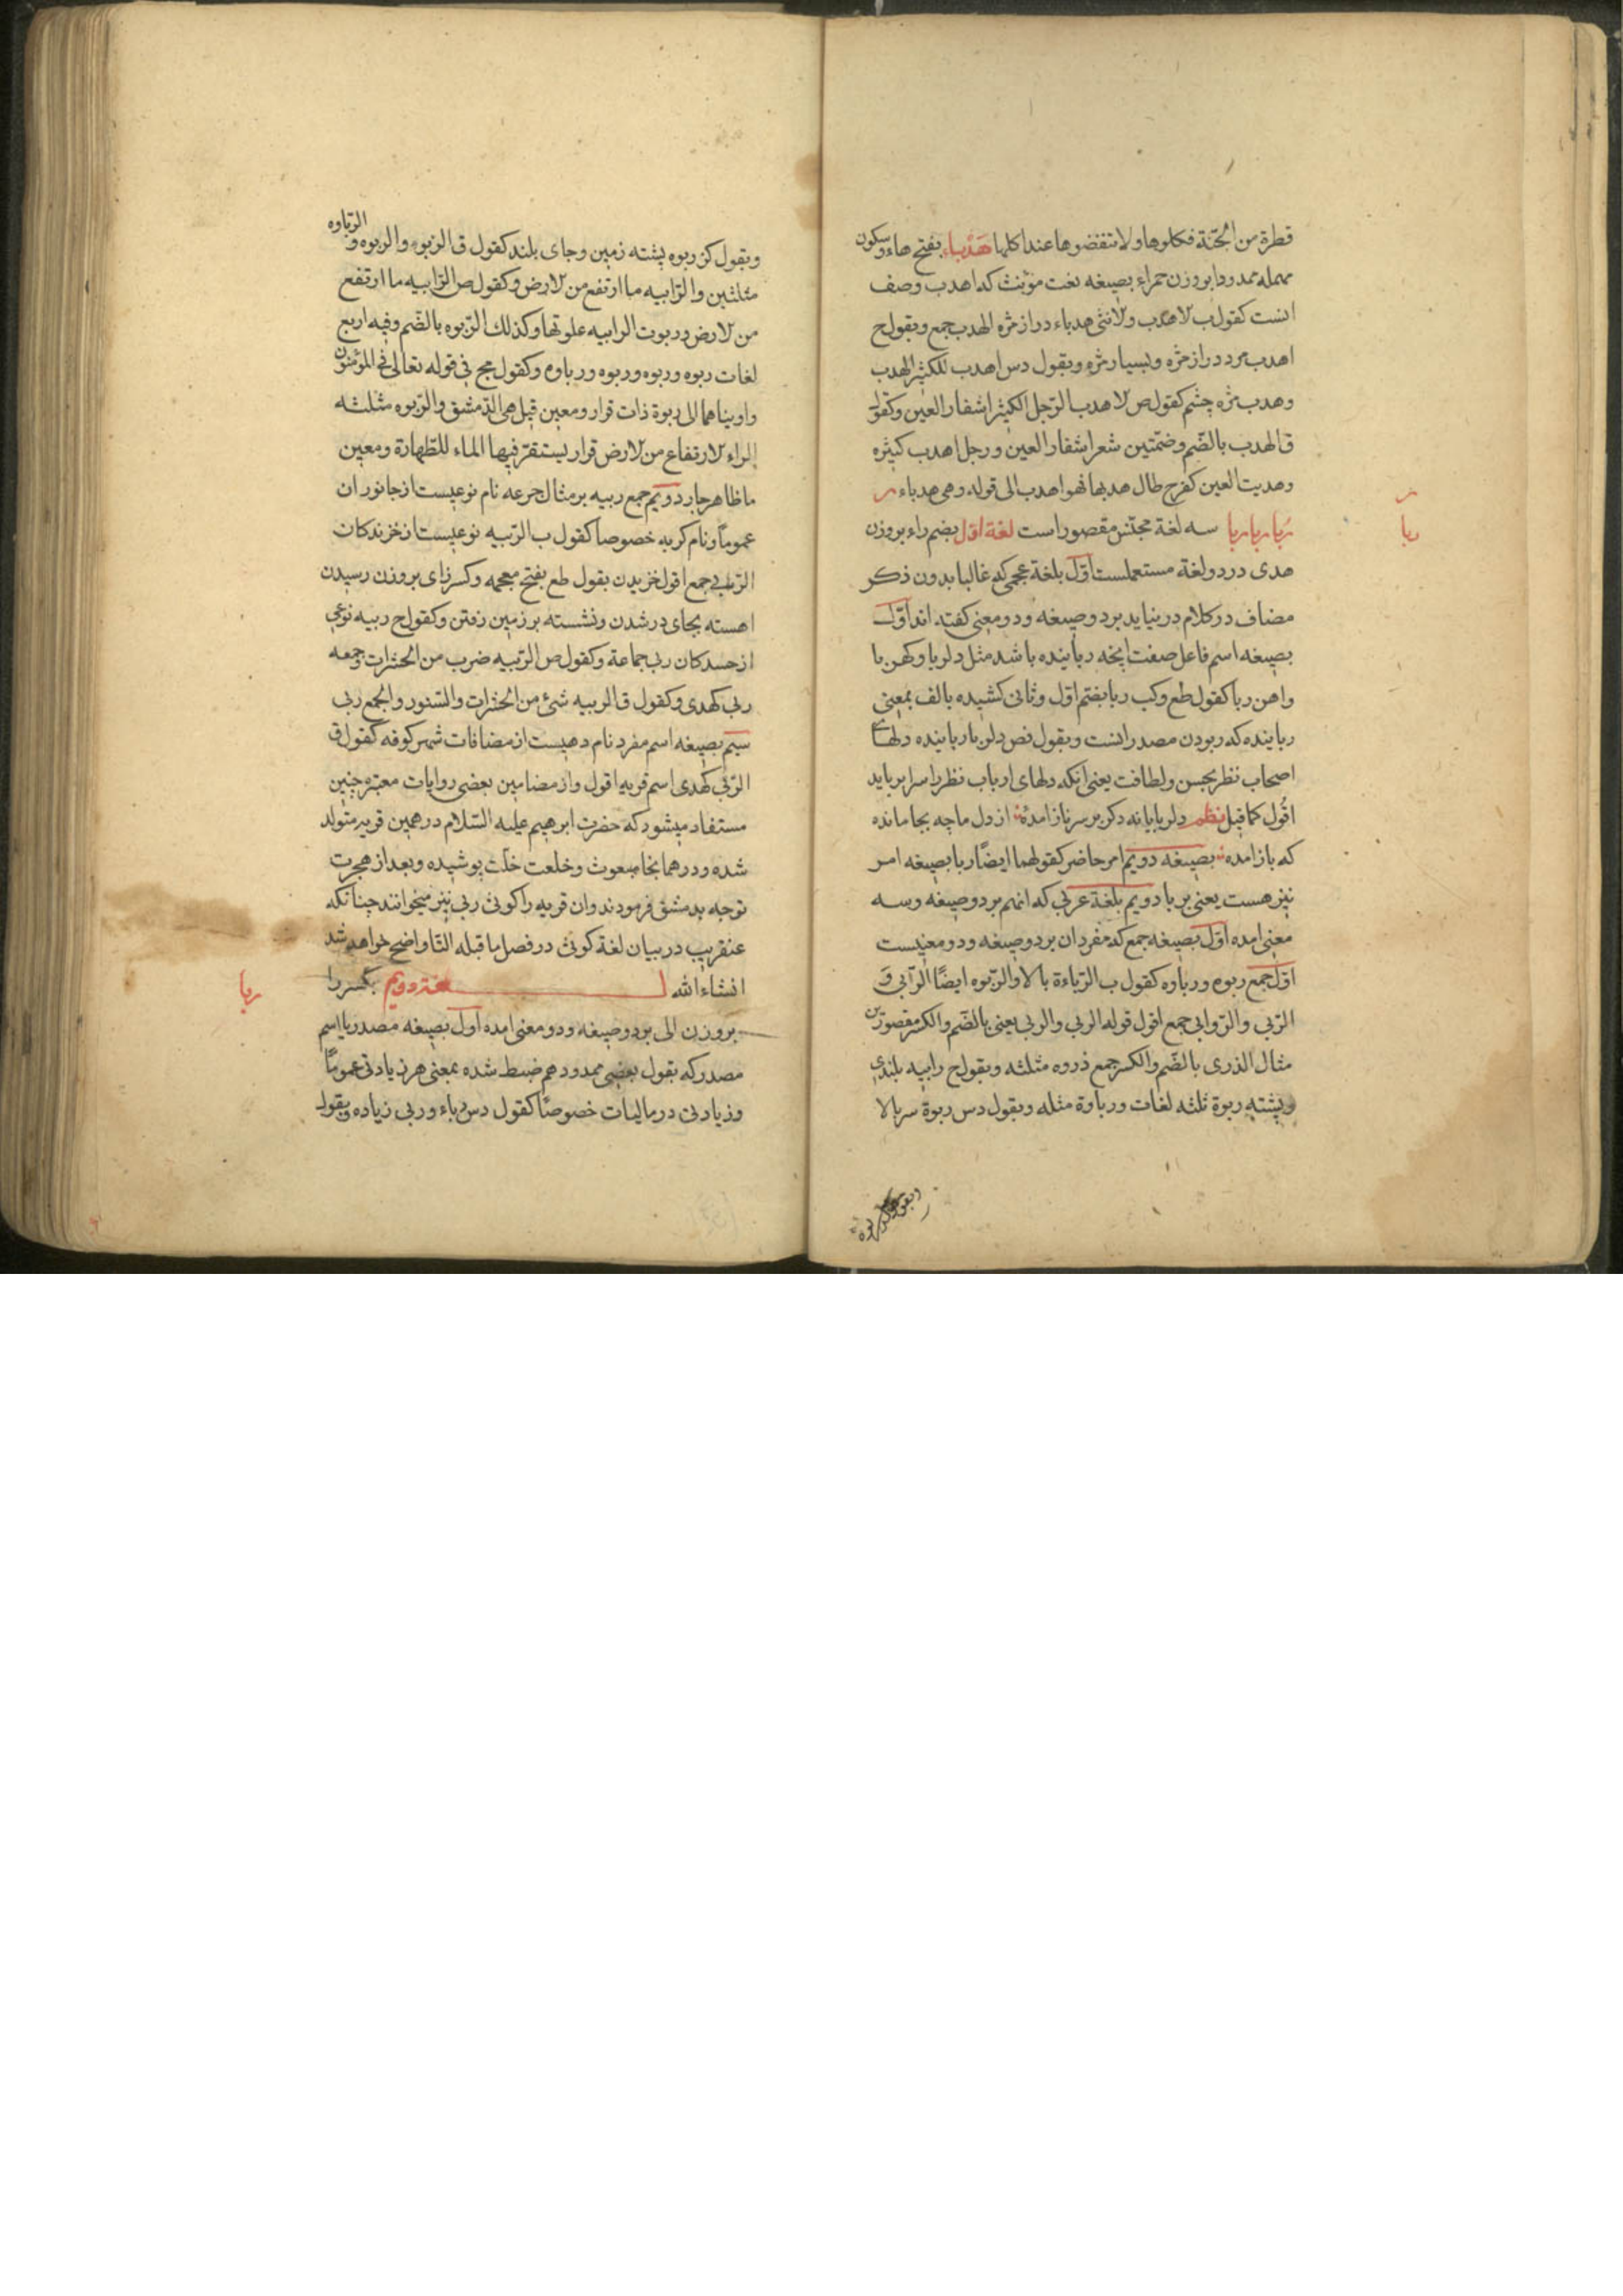 قطرة من الجنّة فكلوها ولا تنفضوها عند اكلها هَدْباء بفتح هاء و سکون
مهمله ممدودا بر وزن حمراء بصیغه نعت مؤنث که اهدب وصف
انست کقول ب لاهدب ولانثی هدباء دراز مژه الهدب جمع و بقول ح
اهدب مرد دراز مژه و بسیار مژه و بقول دس اهدب للکثیر الهدب
وهدب مژه چشم کقول ص لاهدب الرّجل الکثیر اشفار العین و کقول
ق الهدب بالضّم وضمّتین شعر اشفار العین ورجل اهدب کثیره
وهدبت العین کفرح طال هدبها فهو اهدب الی قوله وهی هدباء
رُبا رِبا ربا سه لغة مجنّس مقصور است لغة اوّل بضم راء بر وزن
هدی در دو لغة مستعملست اوّل بلغة عجمی که غالبا بدون ذکر
مضاف در کلام در نیاید بر دو صیغه و دو معنی گفته اند اوّل
بصیغه اسم فاعل صفت انچه رباینده باشد مثل دلربا و کهربا
واهن ربا کقول طع وکب ربا بضم اوّل وثانی کشیده بالف بمعنی
رباینده که ربودن مصدر انست و بقول نص دلربا رباینده دلهای
اصحاب نظر بحسن ولطافت یعنی انکه دلهای ارباب نظر را سرابر باید
اقُول کما قیل نظم دلربایانه دکر بر سر ناز امدهٔ از دل ما چه بجا مانده
که باز امده بصیغه دویم امر حاضر کقولهما ایضًا ربا بصیغه امر
نیز هست یعنی بربا دویم بلغة عربی که انهم بر دو صیغه وسه
معنی امده اوّل بصیغه جمع که مفرد ان بر دو صیغه و دو معنیست
اوّل جمع ربوه ورباوه کقول ب الرّباءة بالا والرّبوه ایضًا الرّابی وَ
الرّبی والرّوابی جمع اقول قوله الربی والربی یعنی بالضّم والکسر مقصورین
مثال الذری بالضّم والکسر جمع ذروه مثلثه و بقول ح رابیه بلندی
وپشته ربوة ثلثه لغات ورباوة مثله و بقول دس ربوة سر بالا
ر
ربا
وبقول کن ربوه پشته زمین وجای بلند کقول ق الرّبوه والربوه و
الرّباوه
مثلثین والرّابیه ما ارتفع من لارض و کقول ص الرّابیه ما ارتفع
من لارض وربوت الرابیه علوتها وکذلك الرّبوه بالضّم وفیه اربع
لغات ربوه وربوه وربوه ورباوه وکقول مج فی قوله تعالی فی المؤمنون
واویناهما الی ربوة ذات قرار ومعین قیل هی الدّمشق والرّبوه مثلثه
الراء لارتفاع من لارض قرار یستقرّ فیها الماء للطّهارة ومعین
ما ظاهر جار دویم جمع ربیه بر مثال جرعه نام نوعیست از جانوران
عموماً و نام کربه خصوصا کقول ب الرّبیه نوعیست از خزندکان
الرّبی جمع اقول خزیدن بقول طع بفتح معجمه وکسر زای بر وزن رسیدن
اهسته بجای در شدن ونشسته بر زمین رفتن وکقول ح ربیه نوعی
از حسدکان ربی جماعة وکقول ص الرّبیه ضرب من الحشرات وجمعه
ربی کهدی وکقول ق الربیه شیٔ من الحشرات والسّنور والجمع ربی
سیّم بصیغه اسم مفرد نام دهیست از مضافات شهر کوفه کقول ق
الرّبی کهدی اسم قریه اقول واز مضامین بعضی روایات معتبره چنین
مستفاد میشود که حضرت ابرهیم علیه السّلام در همین قریه متولد
شده ودر همانجا مبعوث وخلعت خلّت پوشیده وبعد از هجرت
توجه بدمشق فرمودند وان قریه را کوثی ربی نیز میخوانند چنانکه
عنقریب در بیان لغة کوثی در فصل ما قبله الثا واضح خواهد شد
انشاء الله لغة دویم بکسر را
بر وزن الی بر دو صیغه ودو معنی امده اوّل بصیغه مصدر یا اسم
مصدر که بقول بعضی ممدود هم ضبط شده بمعنی هر زیادتی عموماً
وزیادتی در مالیات خصوصاً کقول دس رباء وربی زیاده وبقول
ربا